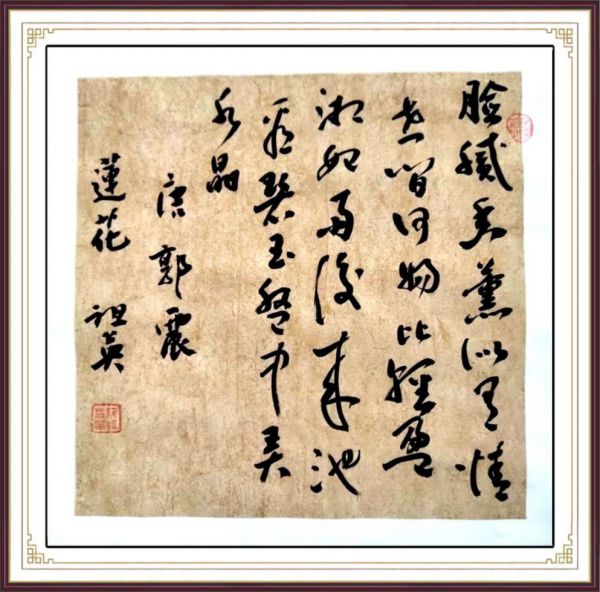 臉膩香薰似有情
世間何物比輕盈
湘妃雨後來池
看碧玉盤中弄
水晶
唐郭震
蓮花 祖英